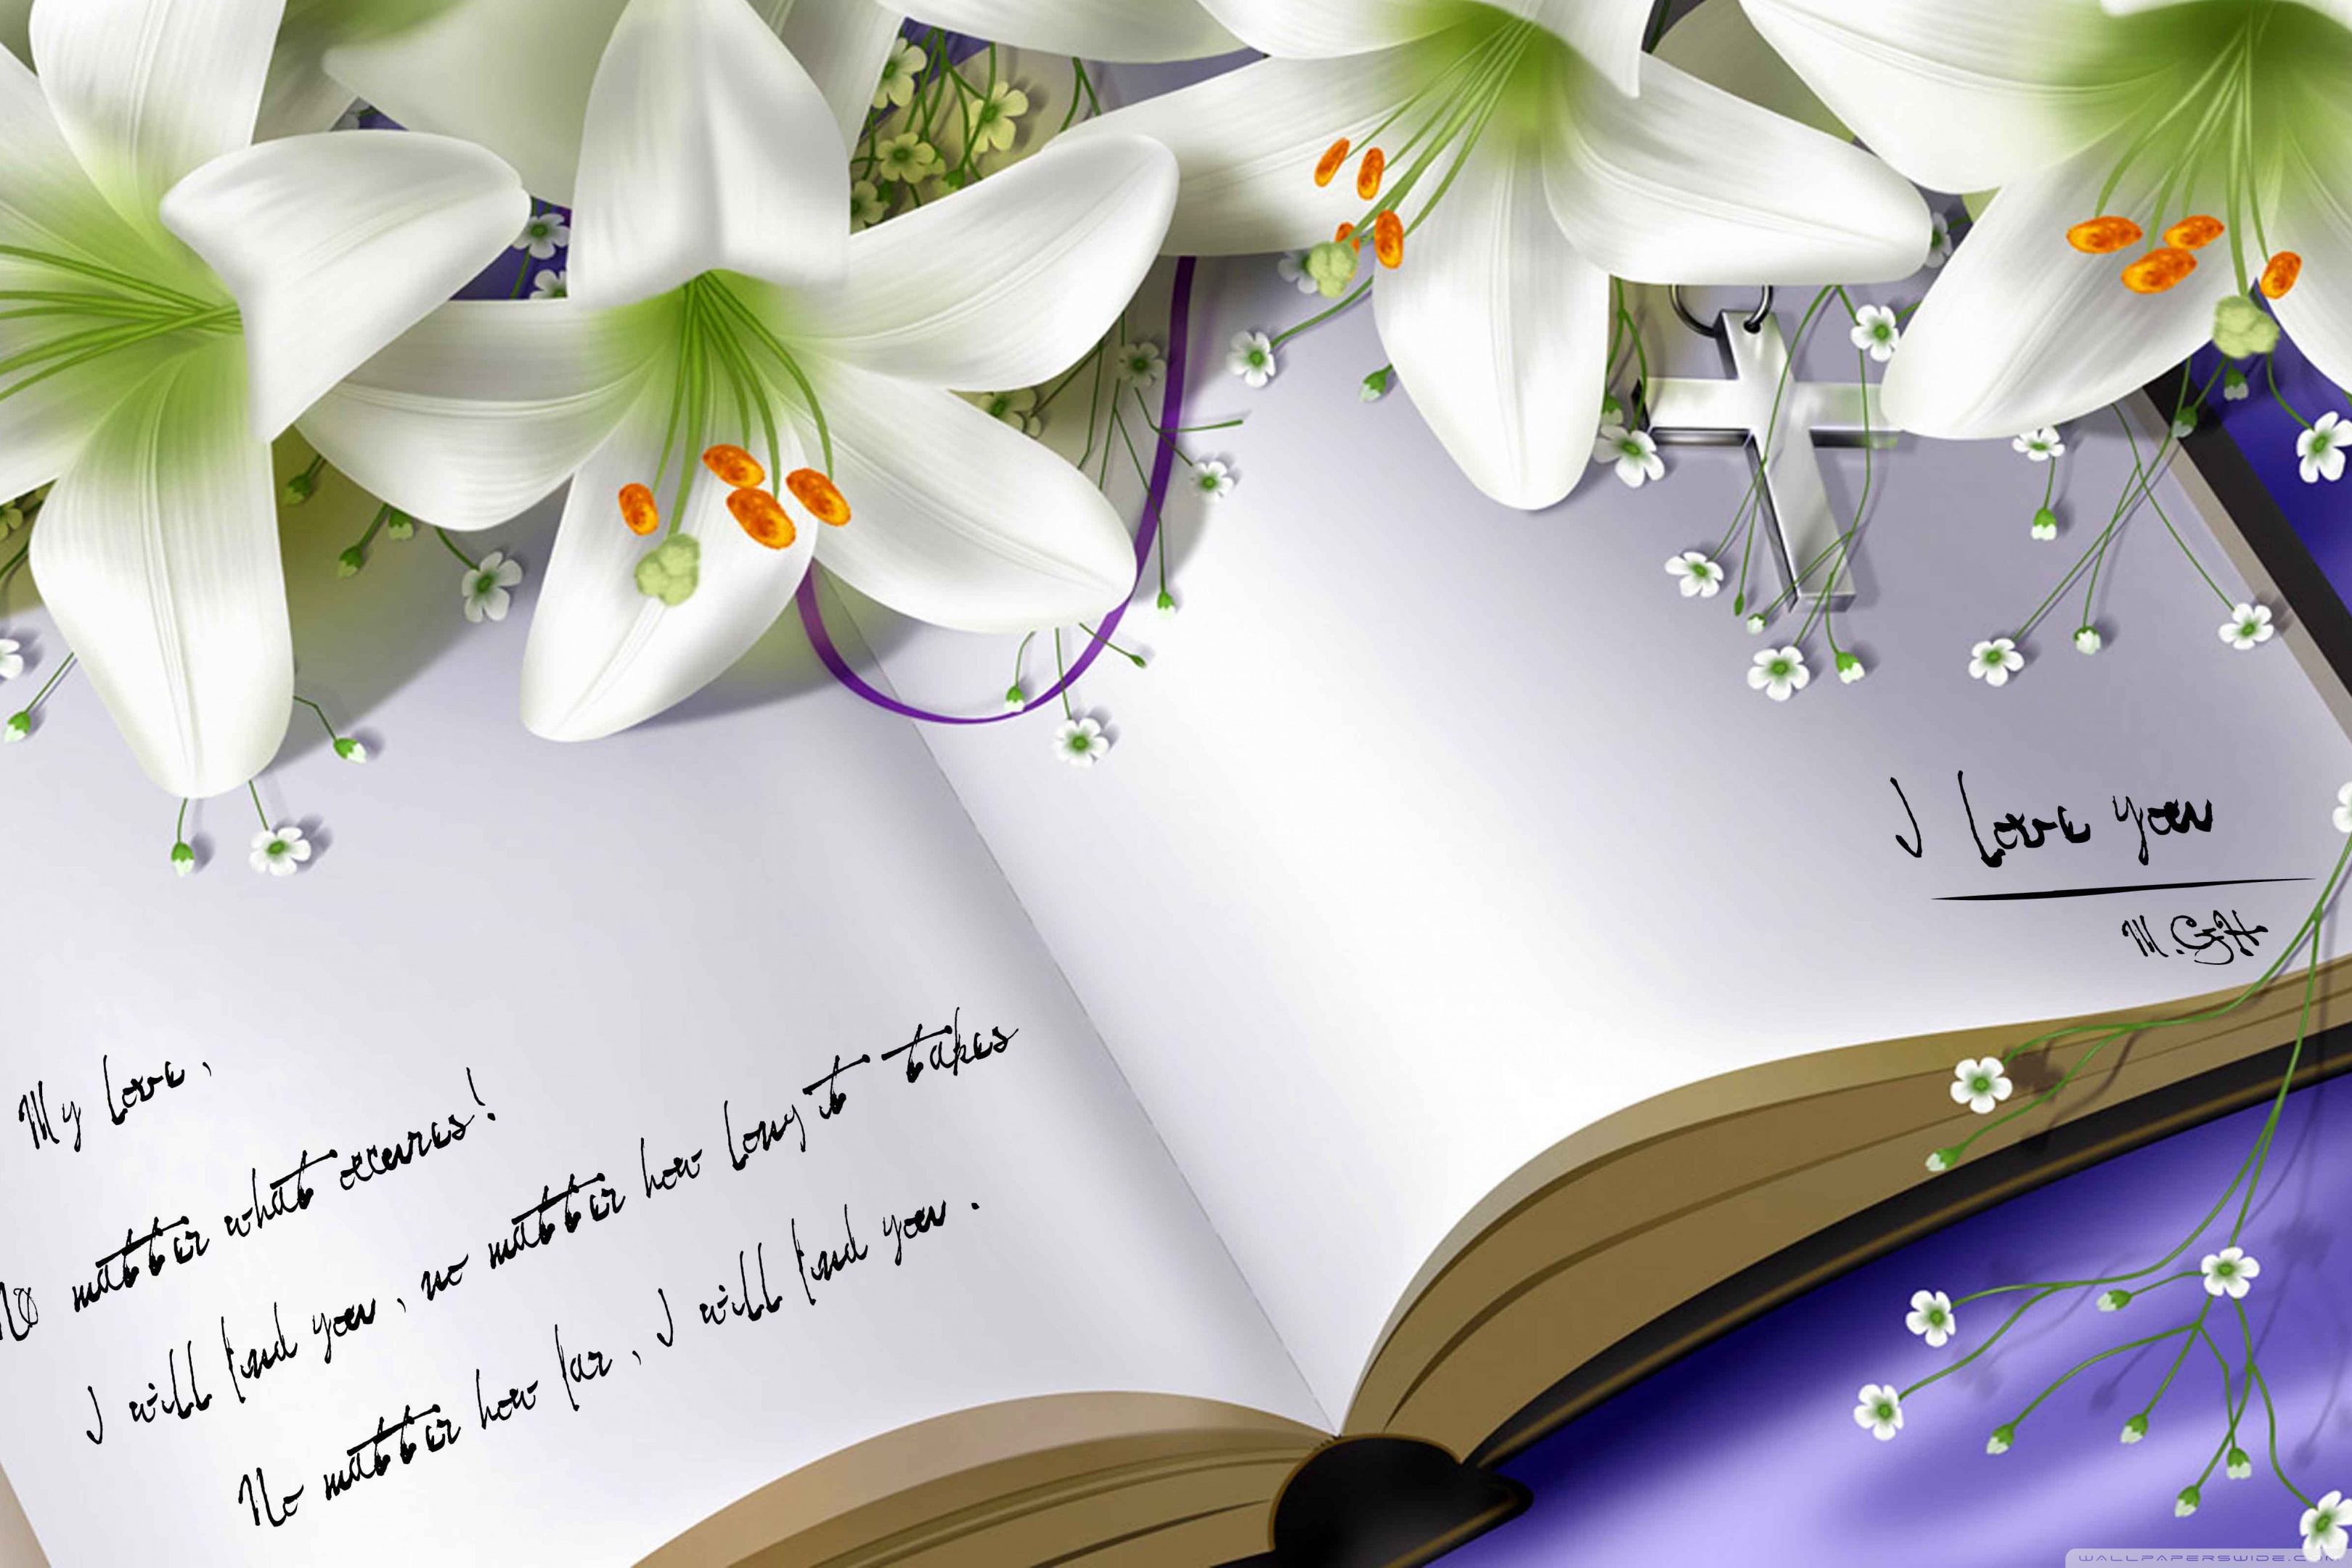 My love,
No matter what occures!
I will find you, no matter how long it takes
No matter how far, I will find you.
I love you
M.GH
WALLPAPERSWIDE.COM